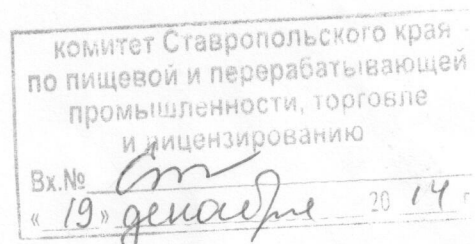 комитет Ставропольского края
по пищевой и перерабатывающей
промышленности, торговле
и лицензированию
Вх.№
« 19 » декабря 2014 г